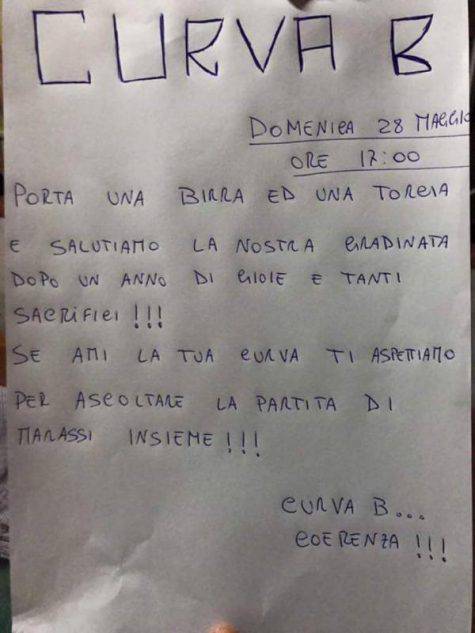 CURVA B
DOMENICA 28 MAGGIO
ORE 17:00
PORTA UNA BIRRA ED UNA TORCIA
E SALUTIAMO LA NOSTRA GRADINATA
DOPO UN ANNO DI GIOIE E TANTI
SACRIFICI !!!
SE AMI LA TUA CURVA TI ASPETTIAMO
PER ASCOLTARE LA PARTITA DI
MARASSI INSIEME !!!
CURVA B...
COERENZA !!!